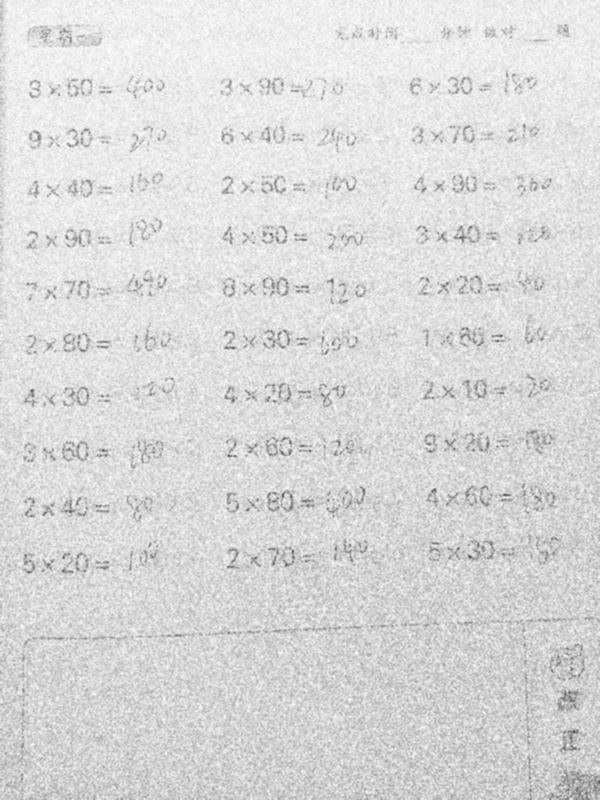 星期一 完成时间 分钟 做对 题
8×50= 400 3×90=270 6×30= 180
9×30= 270 6×40= 240 3×70= 210
4×40= 160 2×50= 100 4×90= 360
2×90= 180 4×50= 200 3×40= 120
7×70= 490 8×90= 720 2×20= 40
2×80= 160 2×30= 1×60= 60
4×30= 120 4×20= 80 2×10= 20
3×60= 180 2×60= 120 9×20= 180
2×40= 80 5×80= 4×60=
5×20= 100 2×70= 140 5×30=